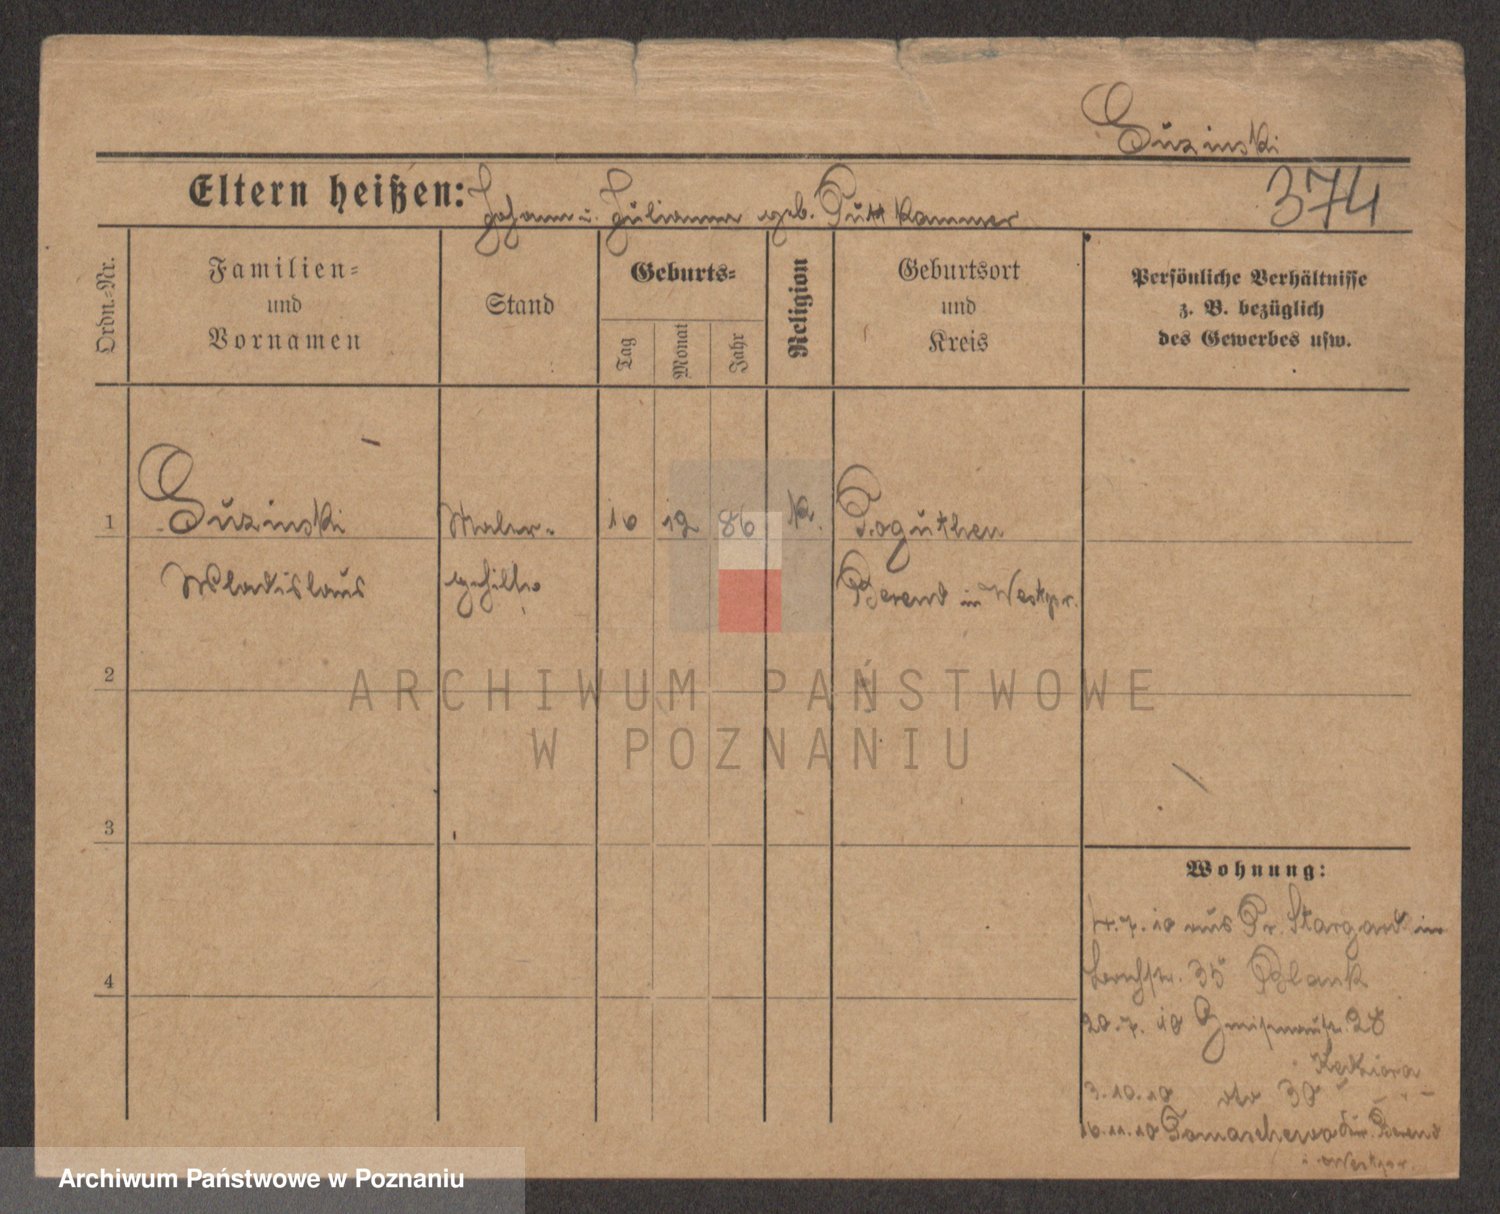 Suzinski
Eltern heißen: Johann u. Julianna geb. Puttkammer
374
Ordn.-Nr.
Familien-
und
Vornamen
Stand
Geburts-
Tag
Monat
Jahr
Religion
Geburtsort
und
Kreis
Persönliche Verhältnisse
z. B. bezüglich
des Gewerbes usw.
1 Suzinski Maler- 10 12 86 K. Poguthen
Wladislaus gehilfe Berend in Westpr.
2
ARCHIWUM PAŃSTWOWE
W POZNANIU
3
Wohnung:
4.7.10 aus Pr. Stargard in
35 Blank
4
20.7.10 Gneisenaustr. 28
3.10.10 dto 38
16.11.10 Berend
Westpr.
Archiwum Państwowe w Poznaniu